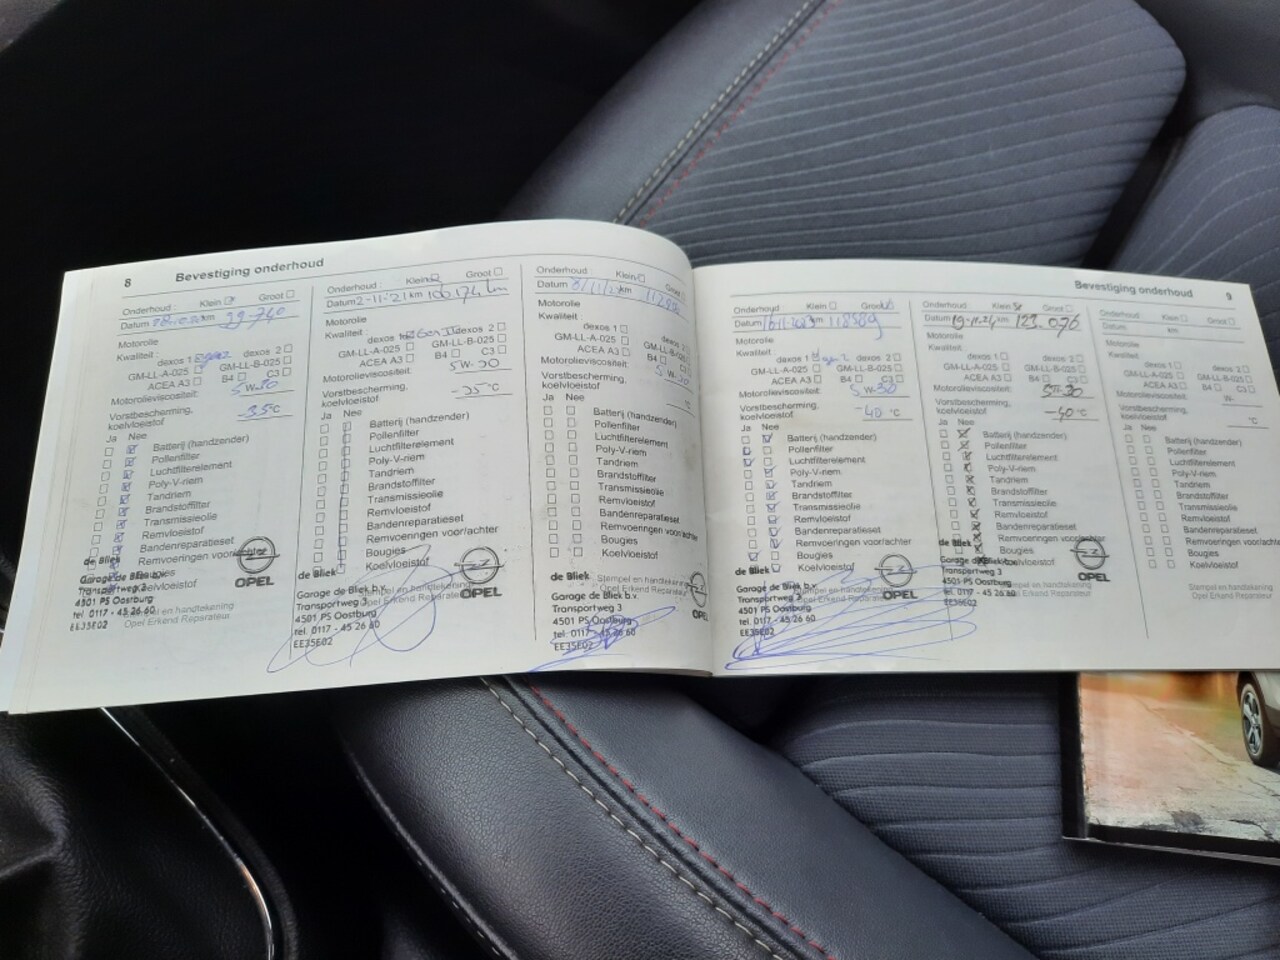 8 Bevestiging onderhoud
Onderhoud : Klein Groot
Datum km 99.740
Motorolie
Kwaliteit :
dexos 1 dexos 2
GM-LL-A-025 GM-LL-B-025
ACEA A3 B4 C3
Motorolieviscositeit: 5 W-30
Vorstbescherming,
koelvloeistof -35 °C
Ja Nee
Batterij (handzender)
Pollenfilter
Luchtfilterelement
Poly-V-riem
Tandriem
Brandstoffilter
Transmissieolie
Remvloeistof
Bandenreparatieset
Remvoeringen voor/achter
Bougies
Koelvloeistof
de Bliek
Garage de Bliek b.v.
Transportweg 3
4501 PS Oostburg
tel. 0117 - 45 26 60
EE35E02
Stempel en handtekening
Opel Erkend Reparateur
OPEL
Onderhoud : Klein Groot
Datum 2-11-'21 km 106174 km
Motorolie
Kwaliteit : dexos 1 Gen II dexos 2
GM-LL-A-025 GM-LL-B-025
ACEA A3 B4 C3
Motorolieviscositeit: 5 W-30
Vorstbescherming,
koelvloeistof -35 °C
Ja Nee
Batterij (handzender)
Pollenfilter
Luchtfilterelement
Poly-V-riem
Tandriem
Brandstoffilter
Transmissieolie
Remvloeistof
Bandenreparatieset
Remvoeringen voor/achter
Bougies
Koelvloeistof
de Bliek
Garage de Bliek b.v.
Transportweg 3
4501 PS Oostburg
tel. 0117 - 45 26 60
EE35E02
Stempel en handtekening
Opel Erkend Reparateur
OPEL
Onderhoud : Klein Groot
Datum km
Motorolie
Kwaliteit :
dexos 1 dexos 2
GM-LL-A-025 GM-LL-B-025
ACEA A3 B4 C3
Motorolieviscositeit: 5 W-30
Vorstbescherming,
koelvloeistof °C
Ja Nee
Batterij (handzender)
Pollenfilter
Luchtfilterelement
Poly-V-riem
Tandriem
Brandstoffilter
Transmissieolie
Remvloeistof
Bandenreparatieset
Remvoeringen voor/achter
Bougies
Koelvloeistof
de Bliek
Garage de Bliek b.v.
Transportweg 3
4501 PS Oostburg
tel. 0117 - 45 26 60
EE35E02
Stempel en handtekening
Opel Erkend Reparateur
OPEL
Bevestiging onderhoud 9
Onderhoud : Klein Groot
Datum km 118589
Motorolie
Kwaliteit :
dexos 1 gen 2 dexos 2
GM-LL-A-025 GM-LL-B-025
ACEA A3 B4 C3
Motorolieviscositeit: 5 W-30
Vorstbescherming,
koelvloeistof -40 °C
Ja Nee
Batterij (handzender)
Pollenfilter
Luchtfilterelement
Poly-V-riem
Tandriem
Brandstoffilter
Transmissieolie
Remvloeistof
Bandenreparatieset
Remvoeringen voor/achter
Bougies
Koelvloeistof
de Bliek
Garage de Bliek b.v.
Transportweg 3
4501 PS Oostburg
tel. 0117 - 45 26 60
EE35E02
Stempel en handtekening
Opel Erkend Reparateur
OPEL
Onderhoud : Klein Groot
Datum 19-11-24 km 123.076
Motorolie
Kwaliteit :
dexos 1 dexos 2
GM-LL-A-025 GM-LL-B-025
ACEA A3 B4 C3
Motorolieviscositeit: 5 W-30
Vorstbescherming,
koelvloeistof -40 °C
Ja Nee
Batterij (handzender)
Pollenfilter
Luchtfilterelement
Poly-V-riem
Tandriem
Brandstoffilter
Transmissieolie
Remvloeistof
Bandenreparatieset
Remvoeringen voor/achter
Bougies
Koelvloeistof
de Bliek
Garage de Bliek b.v.
Transportweg 3
4501 PS Oostburg
tel. 0117 - 45 26 60
EE35E02
OPEL
Onderhoud : Klein Groot
Datum km
Motorolie
Kwaliteit :
dexos 1 dexos 2
GM-LL-A-025 GM-LL-B-025
ACEA A3 B4 C3
Motorolieviscositeit: W-
Vorstbescherming,
koelvloeistof °C
Ja Nee
Batterij (handzender)
Pollenfilter
Luchtfilterelement
Poly-V-riem
Tandriem
Brandstoffilter
Transmissieolie
Remvloeistof
Bandenreparatieset
Remvoeringen voor/achter
Bougies
Koelvloeistof
Stempel en handtekening
Opel Erkend Reparateur